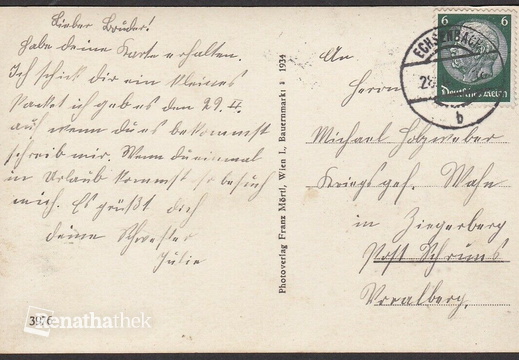 Lieber Bruder!
Habe deine Karte erhalten.
Ich schick dir ein kleines
Packet ich geb es den 29. II.
auf wenn du es bekommst
schreib mir. Wenn du einmal
in Urlaub kommst so besuch
mich. Es grüßt dich
deine Schwester
Julie
3976
Renathathek
Photoverlag Franz Mörtl, Wien I., Bauernmarkt 1934
6 6
Deutsches Reich
ECHSENBACH
b
An
Herrn
Michael Holzweber
Kriegsgef. Wahn
in Ziegerberg
Post Schruns
Vorarlberg.